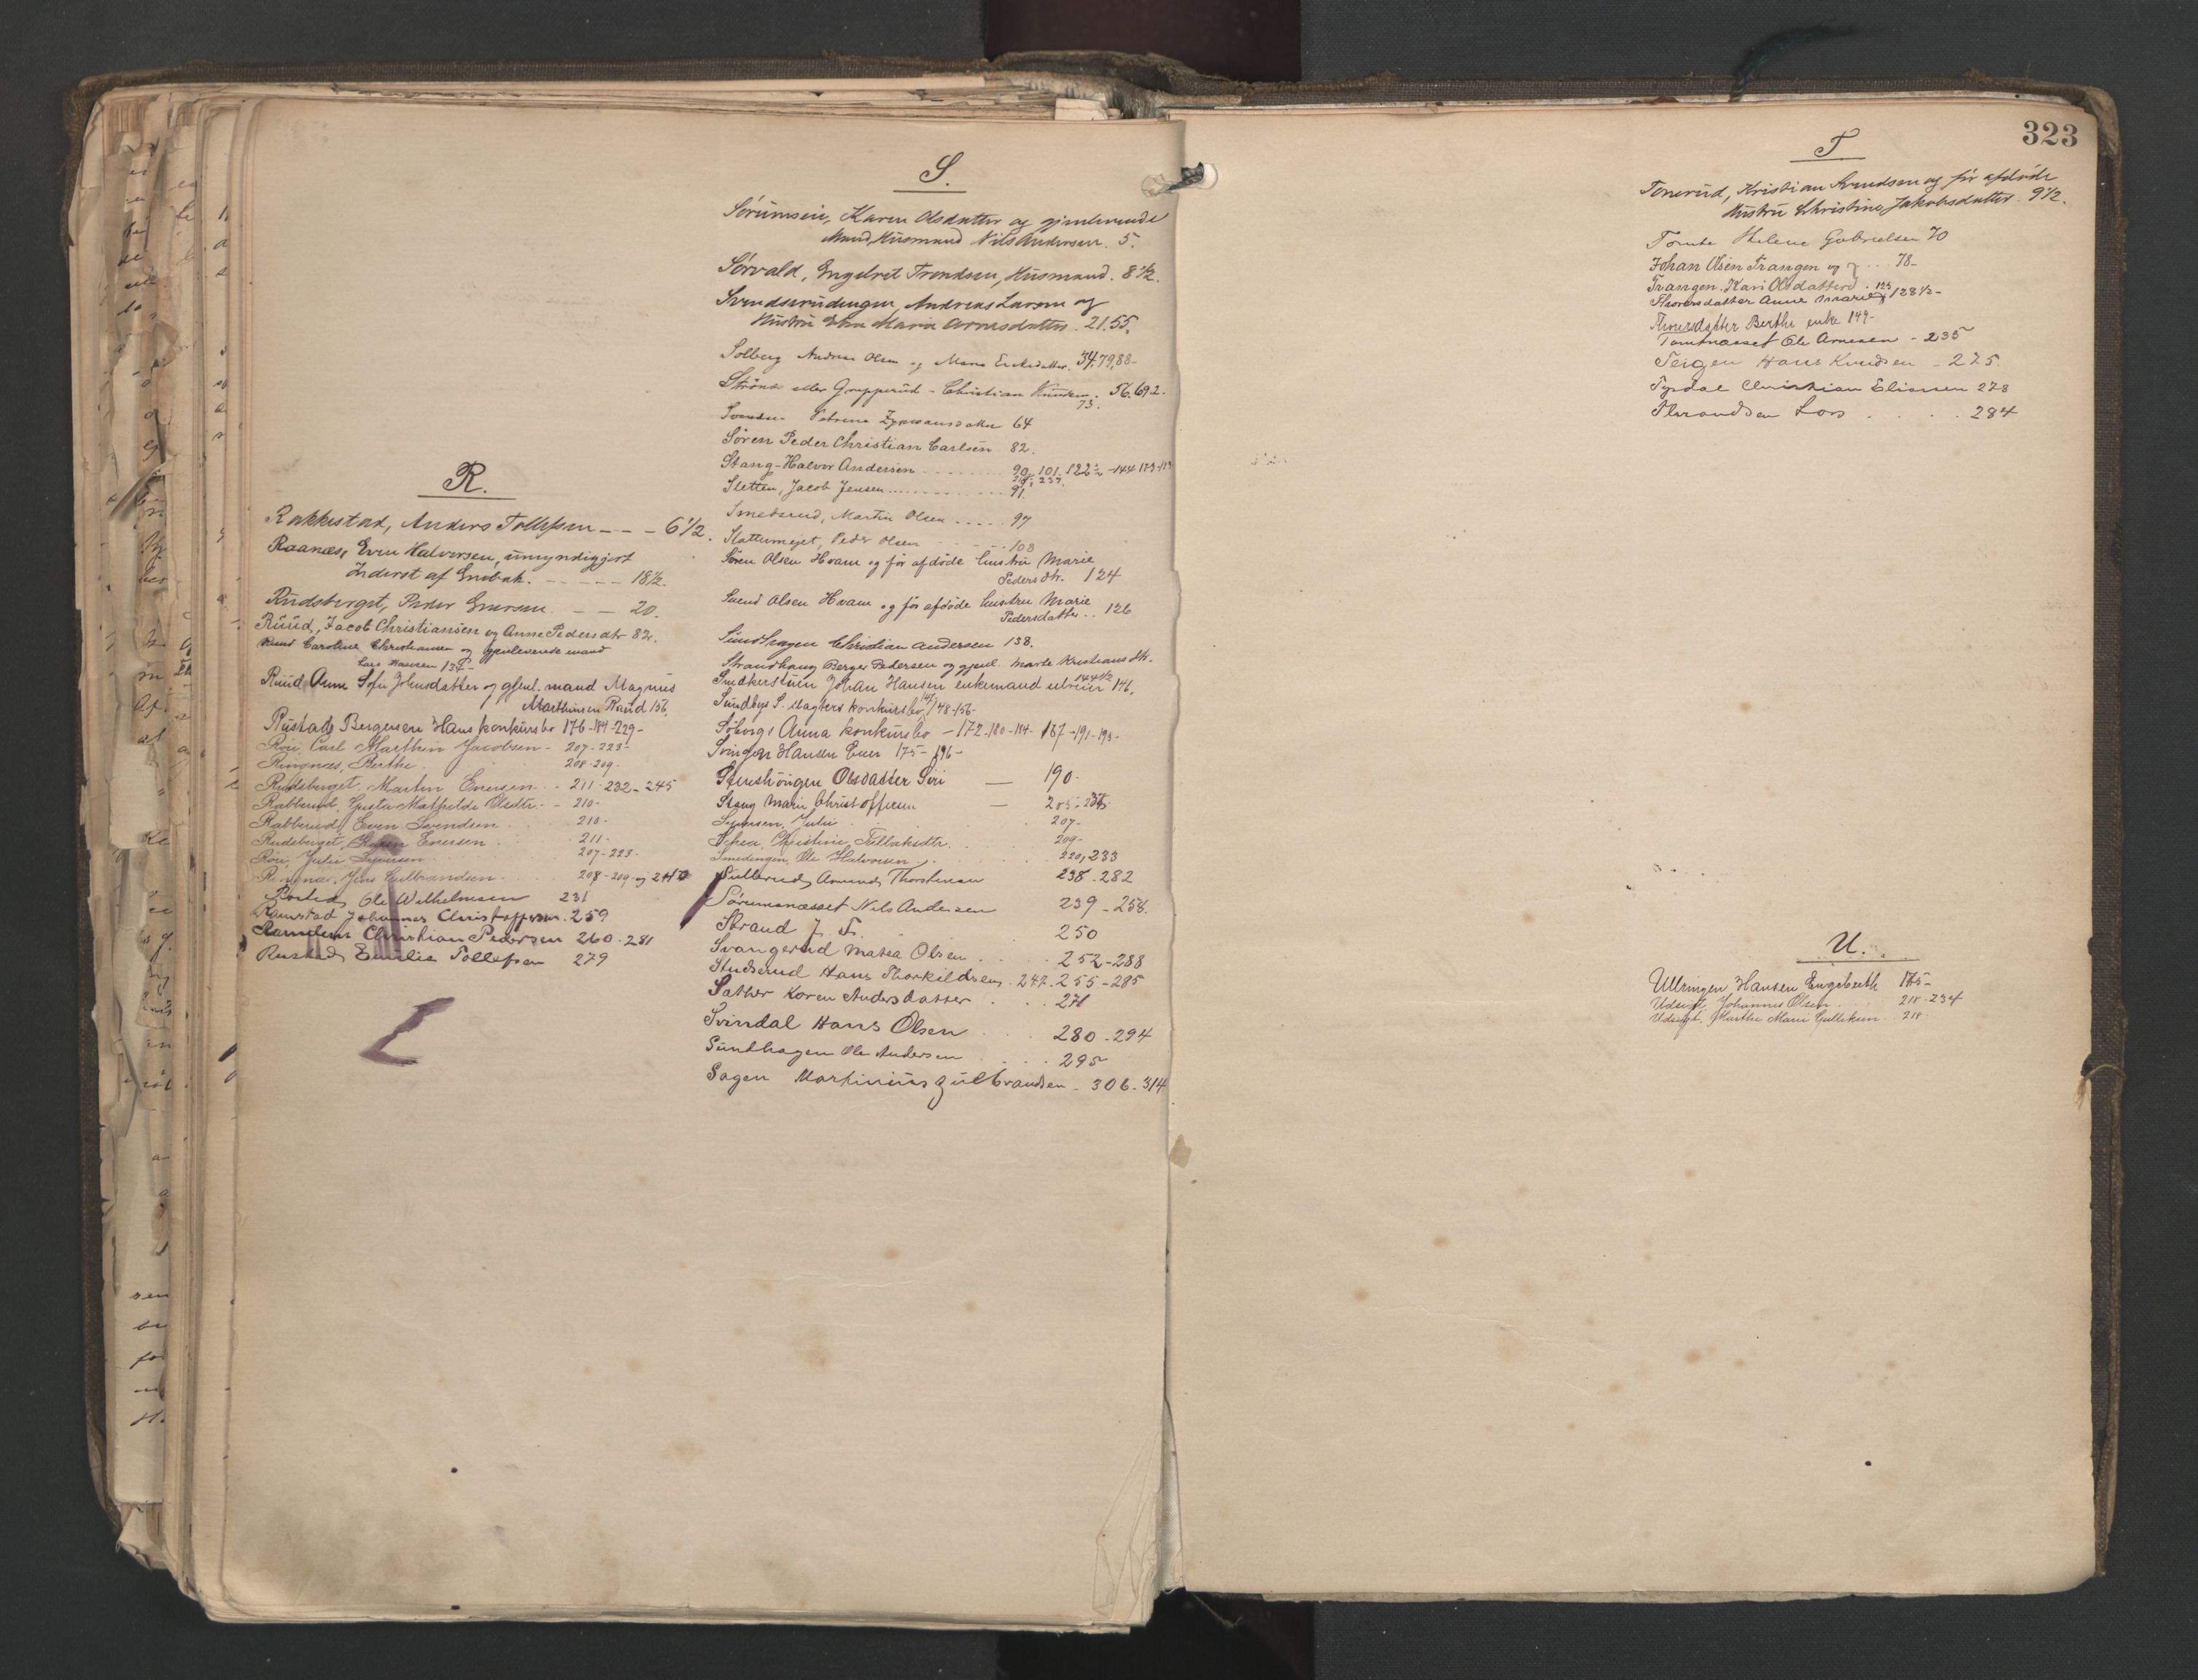 R.
Rakkestad, Anders Tollefsen - - - 6 1/2.
Raanæs, Even Halvorsen, umyndiggjort
Inderst af Enebak. - - - - - 18 1/2.
Rudsberget, Peder Enersen. - - 20.
Ruud, Jacob Christiansen og Anne Pedersdtr 82.
Ruud Caroline Christiansen og gjenlevende mand
Lars Hansen 137-
Ruud Anne Sofie Johnsdatter og gjenl. mand Magnus
Marthinsen Ruud 156.
Rustad, Bergersen Hans konkursbo 176-184-229-
Röu, Carl Marthin Jacobsen - 207-223-
Ringnæs, Berthe. 208-209-
Rudsberget, Martin Enersen - 211-232-245
Rabberud, Gusta Mathilde Olsdtr. - 210-
Rabberud, Even Svendsen 210-
Rudsberget, Karen Enersen 211-
Röu, Julie Syversen 207-223-
Ringnæs, Jens Gulbrandsen 208-209- og 240
Rosted, Ole Wilhelmsen 231
Ramstad Johannes Christoffersen. 259
Christian Pedersen 260-281
Rustad, Emilie Tollefsen 279
S.
Sørumseie, Karen Olsdatter og gjenlevende
Mand, Husmand Nils Andersen. 5.
Sørvald, Engebret Trondsen, Husmand. 8 1/2.
Svendserudengen, Andreas Larsen og
Hustru Else Maria Arnesdatter. 21.55.
Solberg Andreas Olsen og Maria Eriksdatter. 34,79,88-
Strönd eller Grupperud - Christian Knudsen. 56.692.
73.
Svendsen Petrine 64
Søren Peder Christian Carlsen 82.
Stang-Halvor Andersen 90, 101. 122 1/2 -144 173-
237.
Sletten, Jacob Jensen 91.
Smedsrud, Martin Olsen 97
Slattumejet, Peder Olsen 103
Søren Olsen Hvam og før afdöde hustru Marie
Pedersdtr. 124
Svend Olsen Hvam og før afdöde hustru Marie
Pedersdatter 126
Sundhagen Christian Andersen 138.
Strandhaug Berger Pedersen og gjenl. Marte Kristiansdtr.
144 1/2
Snedkerstuen Johan Hansen enkemand selveier 146,
Sundbys S. slagters konkursbo, 148-156-
Söberg, Anna konkursbo - 172-180-184- 187-191-193-
Svingen Hansen Even 175-196-
Stenshörigen Olsdatter Siri — 190-
Stang Marie Christoffersen — 205-
Syversen, Julie 207-
Christine Follaksdtr. 209-
Smedengen, Ole Halvorsen 220, 233
Sulterud, Amund Thorstensen 238-282
Sørumsnæsset Nils Andersen 239-256.
Strand J. Fr. 250
Svangerud Matea Olsen 252-288
Studserud Hans Thorkildsen 247. 255-285
Sather Karen Andersdatter 271
Svindal Hans Olsen 280-294
Sundhagen Ole Andersen 295
Sagen Martinius Gulbrandsen - 306-314
323
T
Tonerud, Kristian Svendsen og før afdöde
Hustru Christine Jakobsdatter. 9 1/2.
Tomte Helene Gabrielsen 70
Johan Olsen Trangen og } 78-
Trangen. Kari Olsdatter
Thorersdatter Anne Marie 125 128 1/2-
Thoresdatter Berthe enke 149-
Tomtnæsset Ole Arnesen - 235
Teigen Hans Knudsen - 275.
Tysdal Christian Eliassen 278
Thrandsen Lars 284
U.
Ullringen Hansen Engebreth 175-
Udsigt, Johannes Olsen 218-234
Udsigt, Marthe Marie Gulliksen 218-